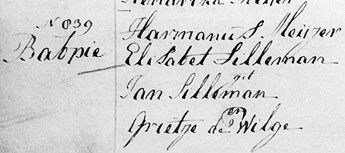 N 839
Babpie
Harmanus S. Meijer
Elisabet Silleman
get
Jan Silleman
en
Grietze de Wilge